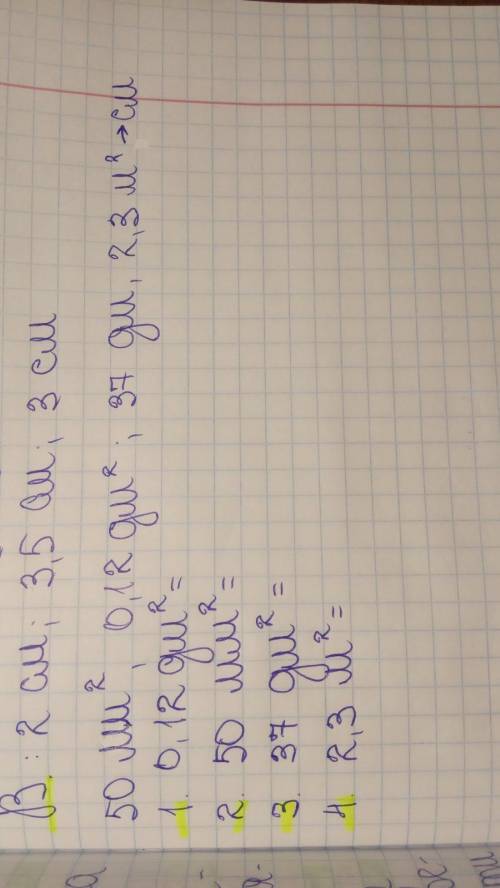 В: 2 см; 3,5 см; 3 см
50 мм², 0,12 дм²; 37 дм, 2,3 м² → см
1. 0,12 дм² =
2. 50 мм² =
3. 37 дм² =
4. 2,3 м² =